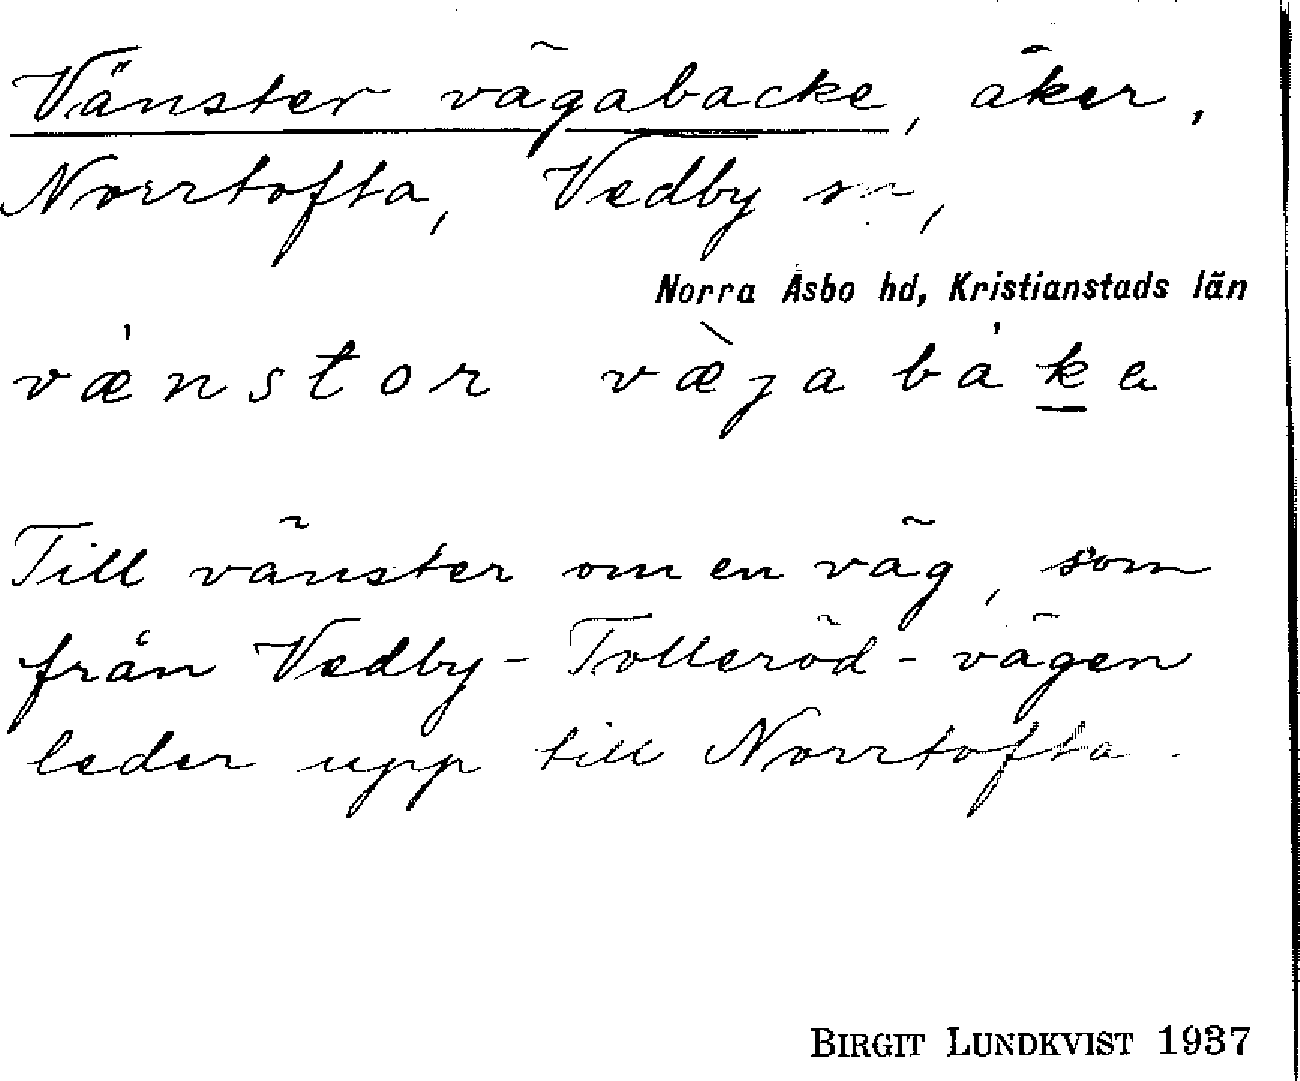 Vänster vägabacke, åker,
Norrtofta, Vedby sn,
Norra Åsbo hd, Kristianstads län
væ̍nstor væ̀ga bȧḵa
Till vänster om en väg, som
från Vedby-Tolleröd-vägen
leder upp till Norrtofta.
BIRGIT LUNDKVIST 1937